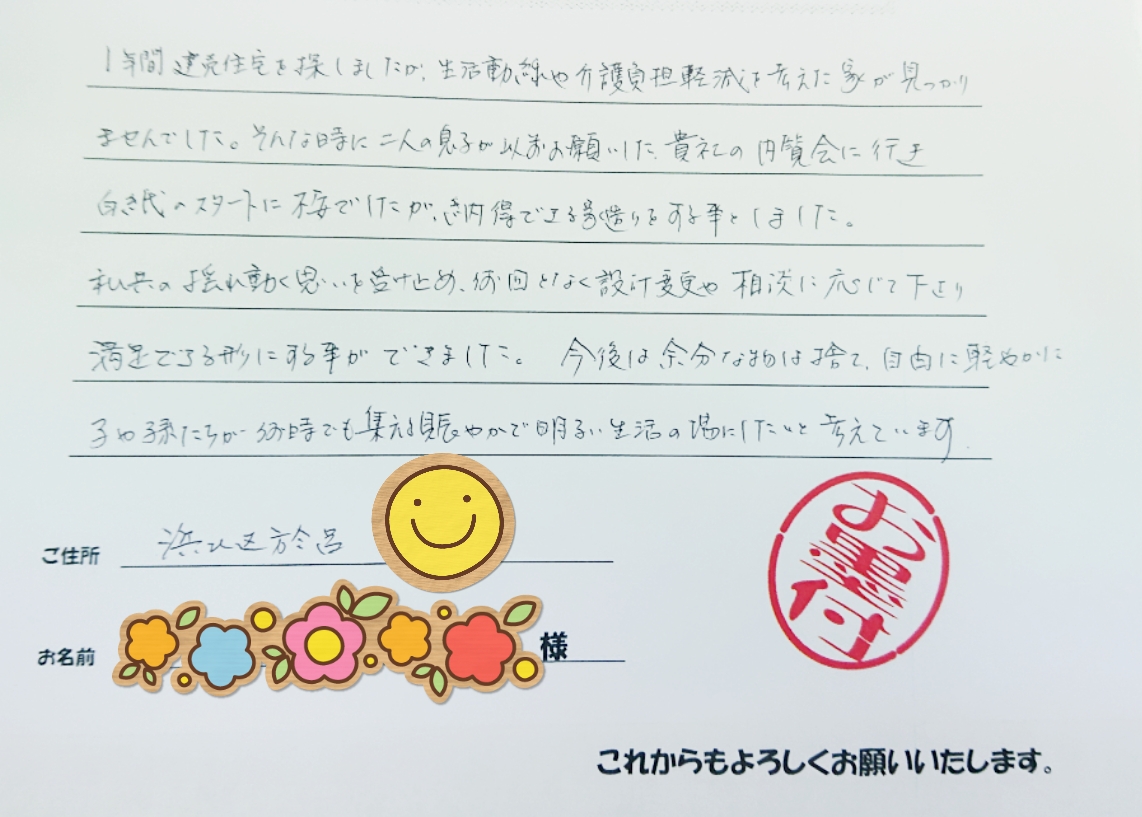 1年間建売住宅を探しましたが、生活動線や介護負担軽減を考えた家が見つかり
ませんでした。そんな時に二人の息子が以前お願いした、貴社の内覧会に行き
白き代のスタートに不安でしたが、納得できる家造りをする事としました。
私共の揺れ動く思いを受け止め、何回となく設計変更や相談に応じて下さり
満足できる形にする事ができました。 今後は余分な物は捨て、自由に軽やかに
子や孫たちが何時でも集える賑やかで明るい生活の場にしたいと考えています。
ご住所 浜北区於呂
お名前 様
お墨付
これからもよろしくお願いいたします。